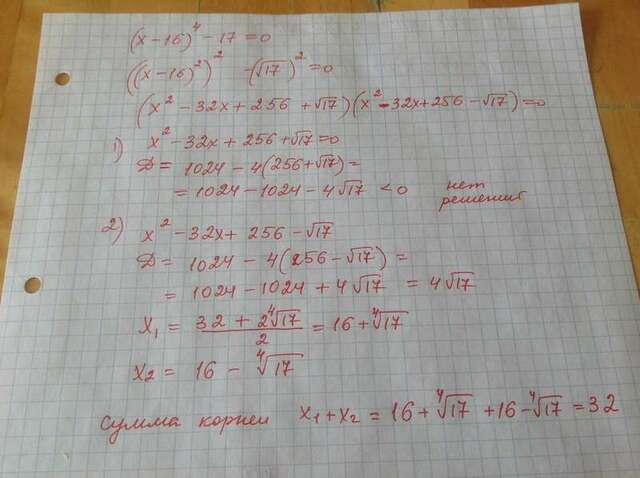 (x-16)⁴ - 17 = 0
((x-16)²)² - (√17)² = 0
(x² - 32x + 256 + √17)(x² - 32x + 256 - √17) = 0
1) x² - 32x + 256 + √17 = 0
D = 1024 - 4(256 + √17) =
= 1024 - 1024 - 4√17 < 0 нет решений
2) x² - 32x + 256 - √17
D = 1024 - 4(256 - √17) =
= 1024 - 1024 + 4√17 = 4√17
X₁ = (32 + 2⁴√17)/2 = 16 + ⁴√17
X₂ = 16 - ⁴√17
Сумма корней X₁ + X₂ = 16 + ⁴√17 + 16 - ⁴√17 = 32